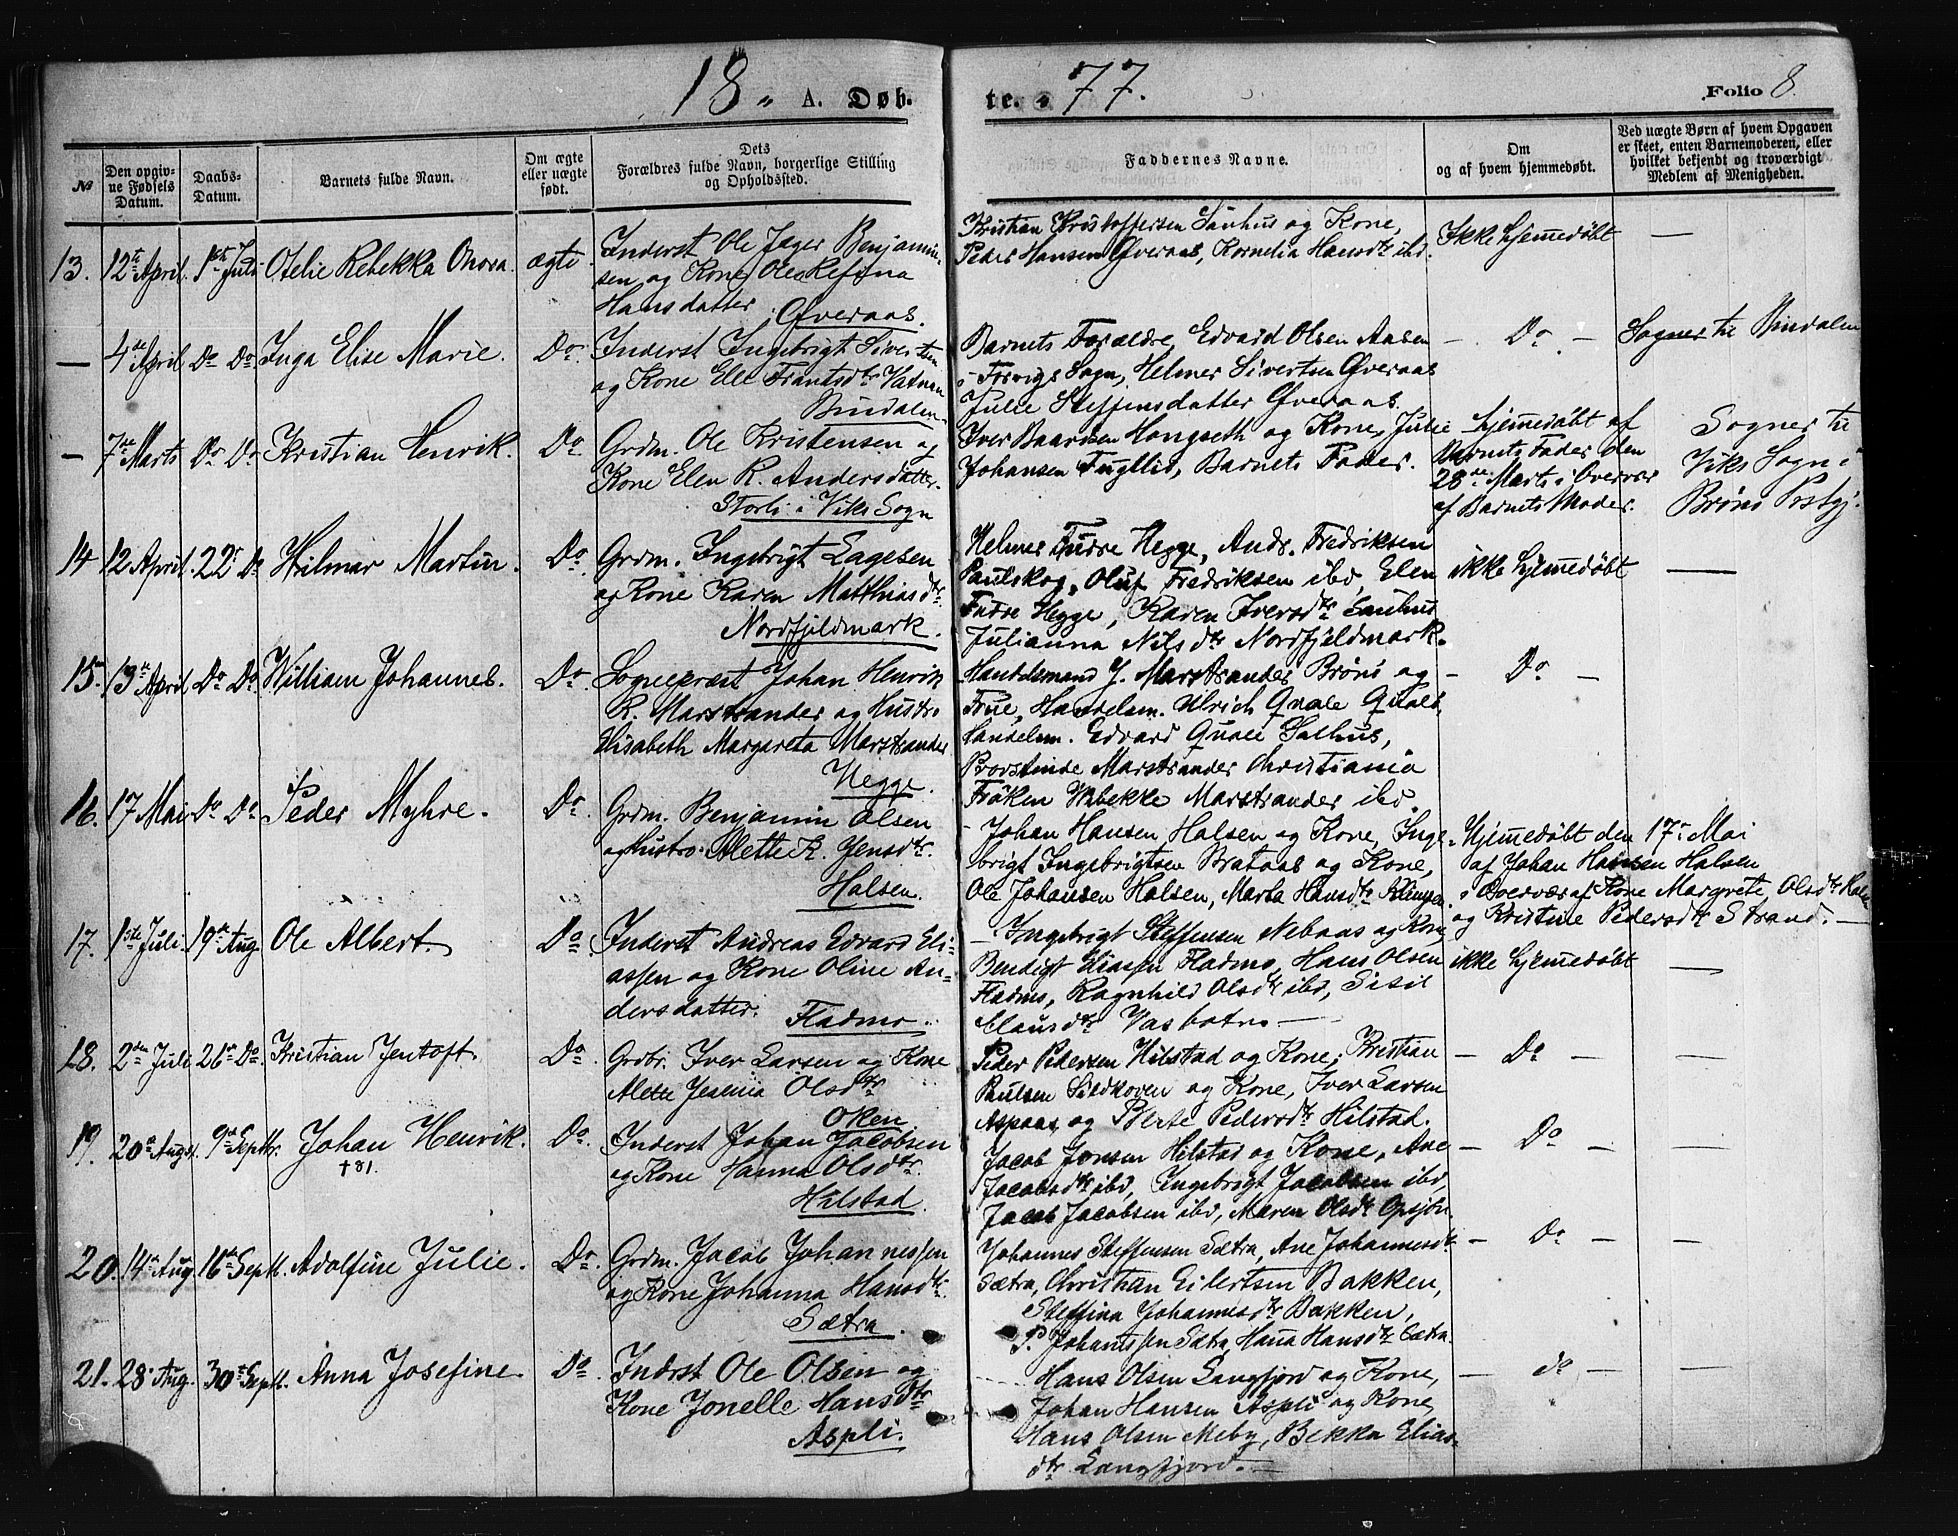 18 „ A. Døb. te. „ 77. Folio 8.
№
Den opgiv-
ne Fødsels
Datum.
Daabs-
Datum.
Barnets fulde Navn.
Om ægte
eller uægte
født.
Dets
Forældres fulde Navn, borgerlige Stilling
og Opholdssted.
Faddernes Navne.
Om
og af hvem hjemmedøbt.
Ved uægte Børn af hvem Opgaven
er skeet, enten Barnemoderen, eller
hvilket bekjendt og troværdigt
Medlem af Menigheden.
13. 12te April. 1ste Juli Otelie Rebekka Onora. ægte
Inderst Ole Jager Benjamin-
sen og Kone Ole Refina
Hansdatter Øveraas.
Kristian Kristoffersen Sanhus og Kone,
Peder Hansen Øveraas, Kornelia Hansdtr ibd.
Ikke hjemmedøbt —
— 4de April Do Do. Inga Elise Marie. Do.
Inderst Ingebrigt Sivertsen
og Kone Ele Frantsdtr Vatnan
Bindalen
Barnets Forældre, Edvard Olsen Aasen
i Forvigs Sogn, Helmer Sivertsen Øveraas
Julie Steffensdatter Øveraas.
— Do — Sogner til Bindalen
— 7de Marts Do Do. Kristian Henrik. Do
Grdm. Ole Kristensen og
Kone Elen R. Andersdatter.
Storli i Viks Sogn
Iver Baardsen Hongseth og Kone, Julie
Johansen Fugllid, Barnets Fader.
hjemmedøbt af
Barnets Fader den
28de Marts i Overvær
af Barnets Moder.
Sogner til
Viks Sogn i
Brønø Prstgj.
14 12 April. 22 Do Hilmar Martin. Do
Grdm. Ingebrigt Lagesen
og Kone Karen Matthiasdtr.
Nordfjeldmark.
Helmer Furre Hegge, Andr. Fredriksen
Paulskog, Oluf Fredriksen ibd, Elen
Furre Hegge, Karen Iversdtr Sanhus
Julianna Nilsdtr Nordfjeldmark.
ikke hjemmedøbt —
15. 13de April Do Do. William Johannes. Do.
Sognepræst Johan Henrik
R. Marstrander og Hustro
Elisabeth Margareta Marstrander
Hegge.
Handelsmand J. Marstrander Brønø og
Frue, Handelsm. Ulrich Quale Qualø,
Handelsm. Edvard Quale Salhus,
Provstinde Marstrander Christiania
Frøken Vibekke Marstrander ibd.
— Do —
16. 17 Mai Do Do Peder Myhre. Do.
Grdm. Benjamin Olsen
og Hustro Alette K. Jensdtr.
Halsen.
Johan Hansen Halsen og Kone, Inge-
brigt Ingebrigtsen Brataas og Kone,
Ole Johansen Halsen, Marta Hansdtr
Hjemmedøbt den 17 Mai
af Johan Hansen Halsen
i Overvær af Kone Margrete Olsdtr
og Kristine Pedersdtr Strand. —
17. 1ste Juli 19de Aug. Ole Albert. Do
Inderst Andreas Edvard Eli-
assen og Kone Oline An-
dersdatter. Fladmo.
— Ingebrigt Steffensen Nebaas og Kone
Bendigt Eliassen Fladmo, Hans Olsen
Fladmo, Ragnhild Olsdtr ibd, Sisil
Clausdtr Vasbotn —
ikke hjemmedøbt —
18. 2den Juli 26de Do. Kristian Jentoft. Do.
Grdbr. Iver Larsen og Kone
Alette Jesenia Olsdtr
Oken.
Peder Pedersen Hilstad og Kone, Kristian
Paulsen Sildhoven og Kone, Iver Larsen
Aspaas og Berte Pedersdtr Hilstad.
— Do — —
19. 20de Augst. 9de Septbr. Johan Henrik. Do.
+81.
Inderst Johan Jacobsen
og Kone Hanna Olsdtr.
Hilstad.
Jacob Jonsen Hilstad og Kone, Ane
Jacobsdtr ibd, Ingebrigt Jacobsen ibd,
Jacob Jacobsen ibd, Maren Olsdtr Opsjøn.
— Do — —
20. 14de Aug 16de Septb. Adolfine Julie. Do.
Grdm. Jacob Johannessen
og Kone Johanna Hansdtr.
Sætra.
Johannes Steffensen Sætra, Ane Johannesdtr
Sætra, Christian Eilertsen Bakken,
Steffina Johannesdtr Bakken,
P. Johantssen Sætra, Hana Hansdtr Sætra.
— Do — —
21. 28 Aug. 30te Septb. Anna Josefine. Do.
Inderst Ole Olsen og
Kone Jonelle Hansdtr
Aspli.
Hans Olsen Langfjord og Kone,
Johan Hansen Aspli og Kone,
Hans Olsen Meby, Bekka Elias-
dtr Langfjord. —
— do — —